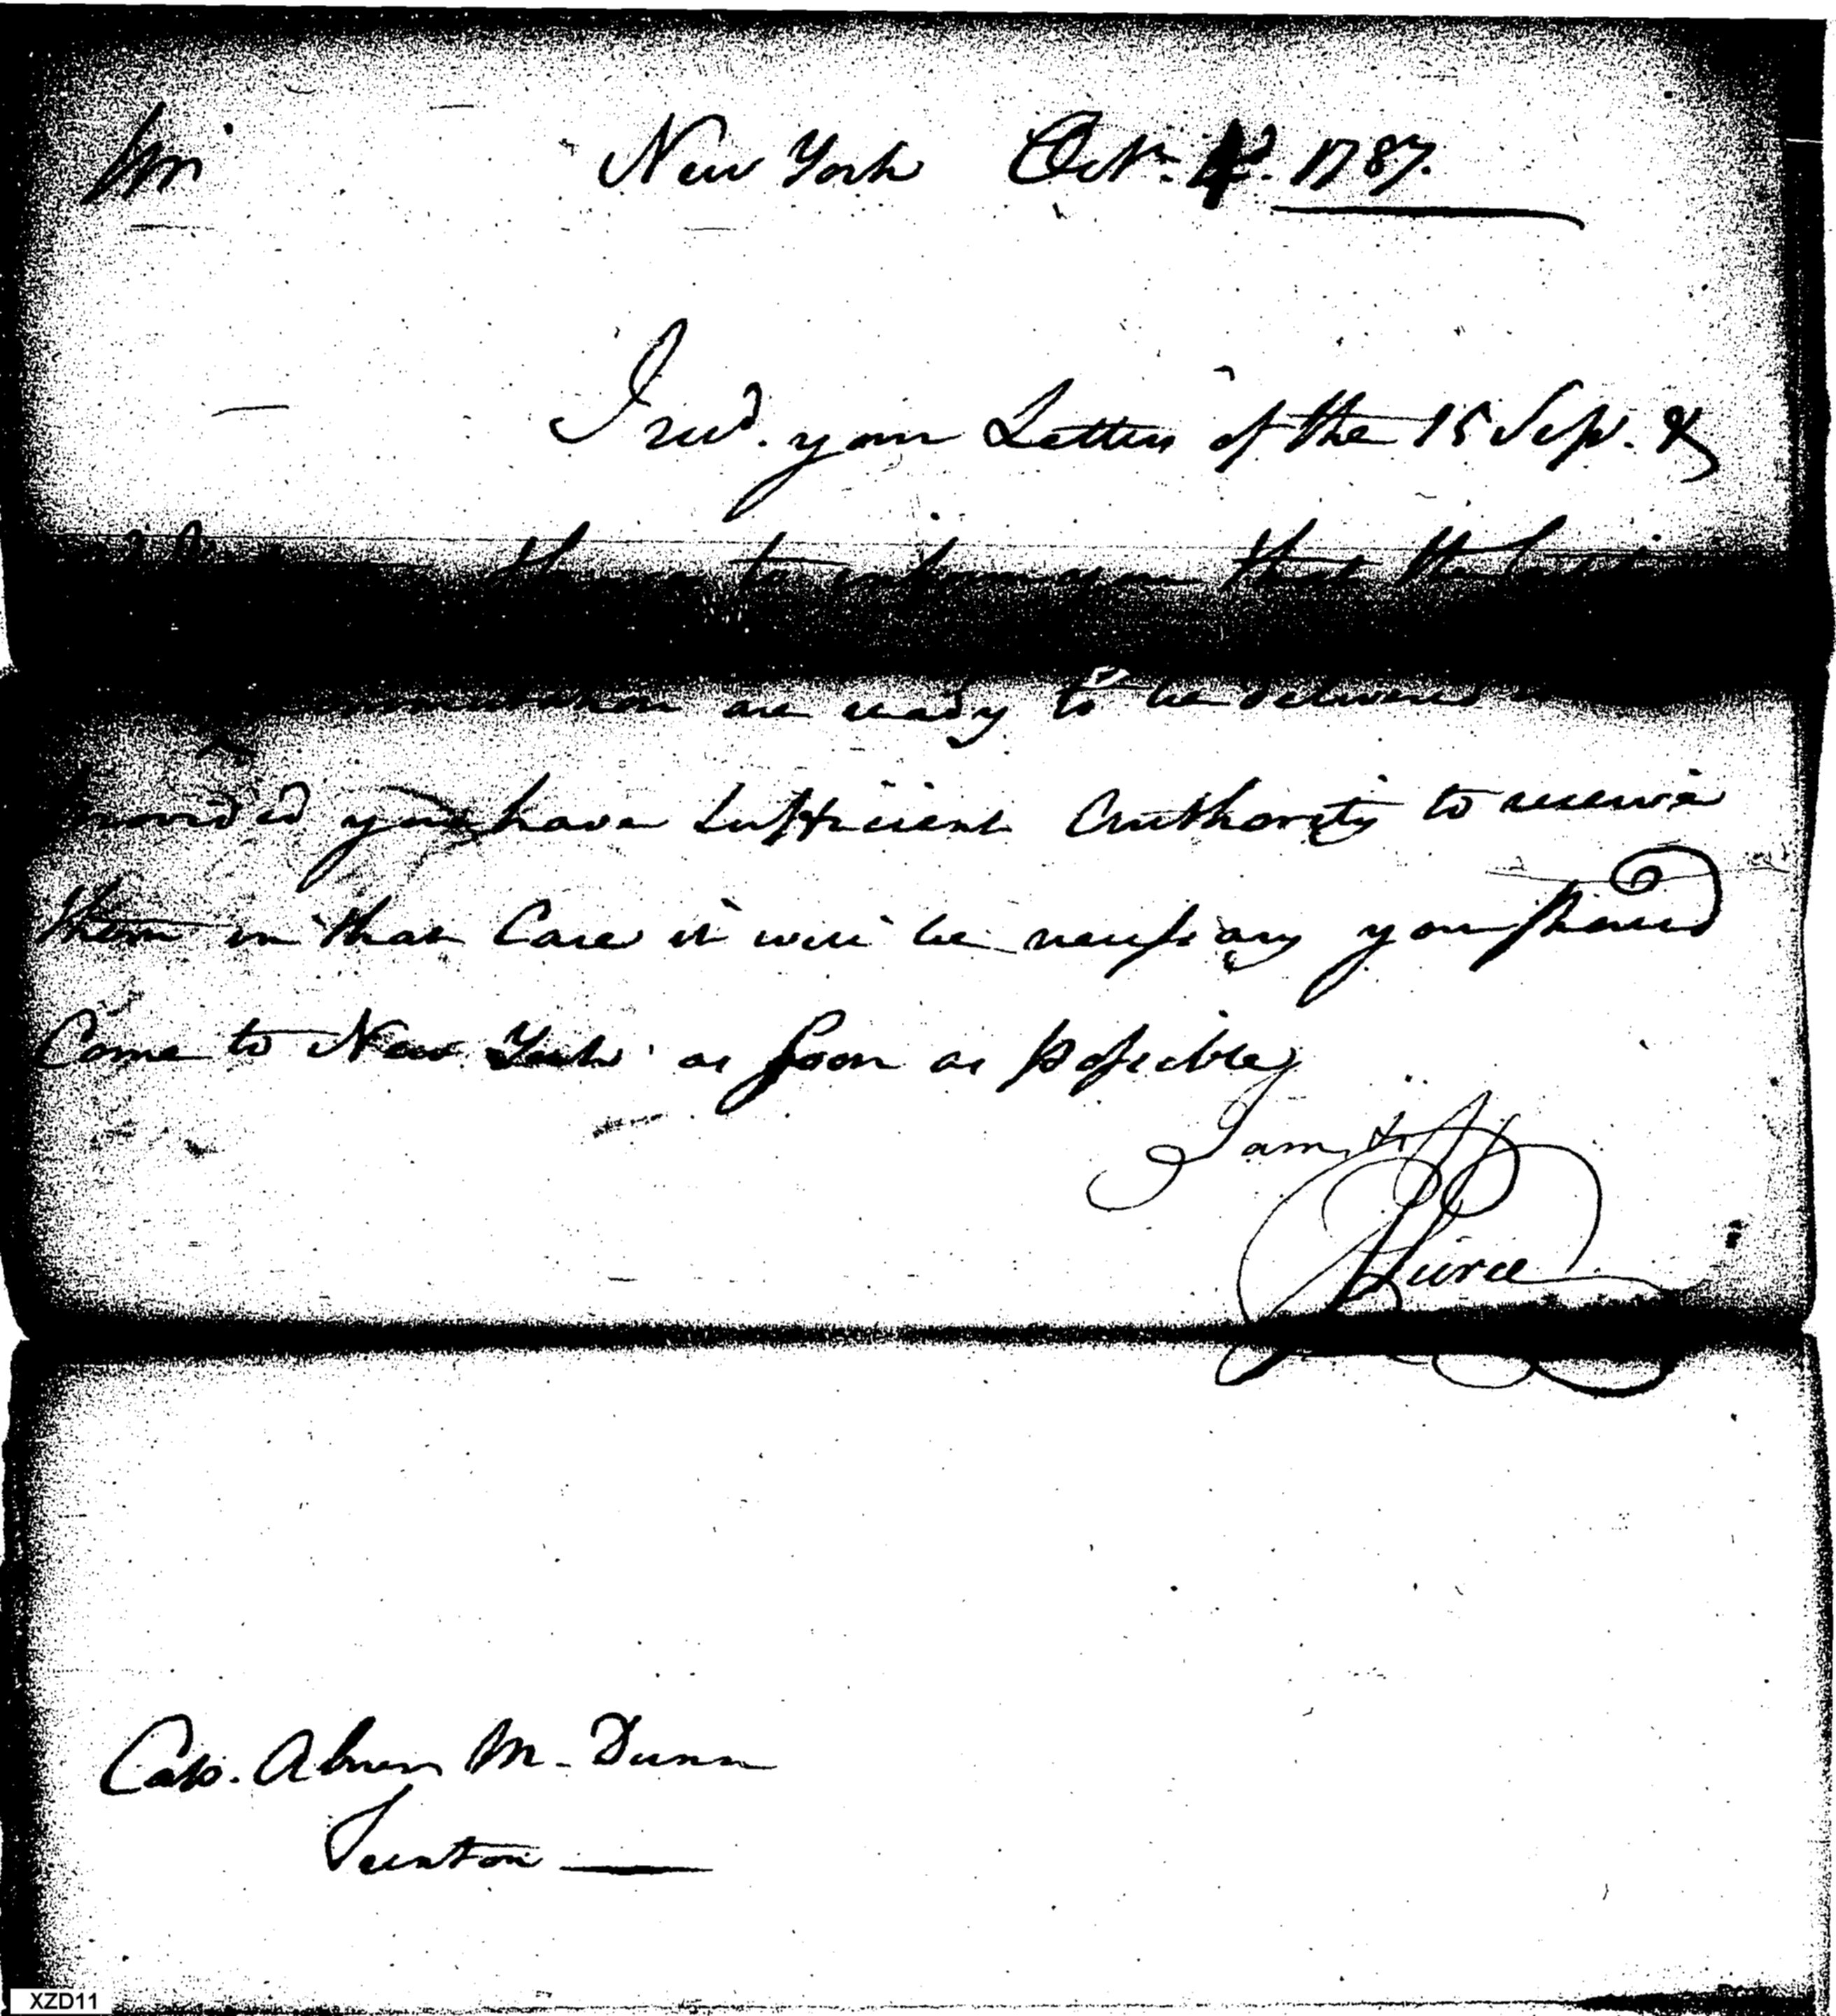 Sir New York Octr. 4. 1787.
I recd. your Letter of the 15 Sep. &
to inform you that the
are ready to be delivered
provided you have sufficient Authority to receive
them in that Case it will be necessary you should
Come to New York as soon as possible
I am, Sir
Pierce
Cap. Abner M. Dunn
Trenton
XZD11